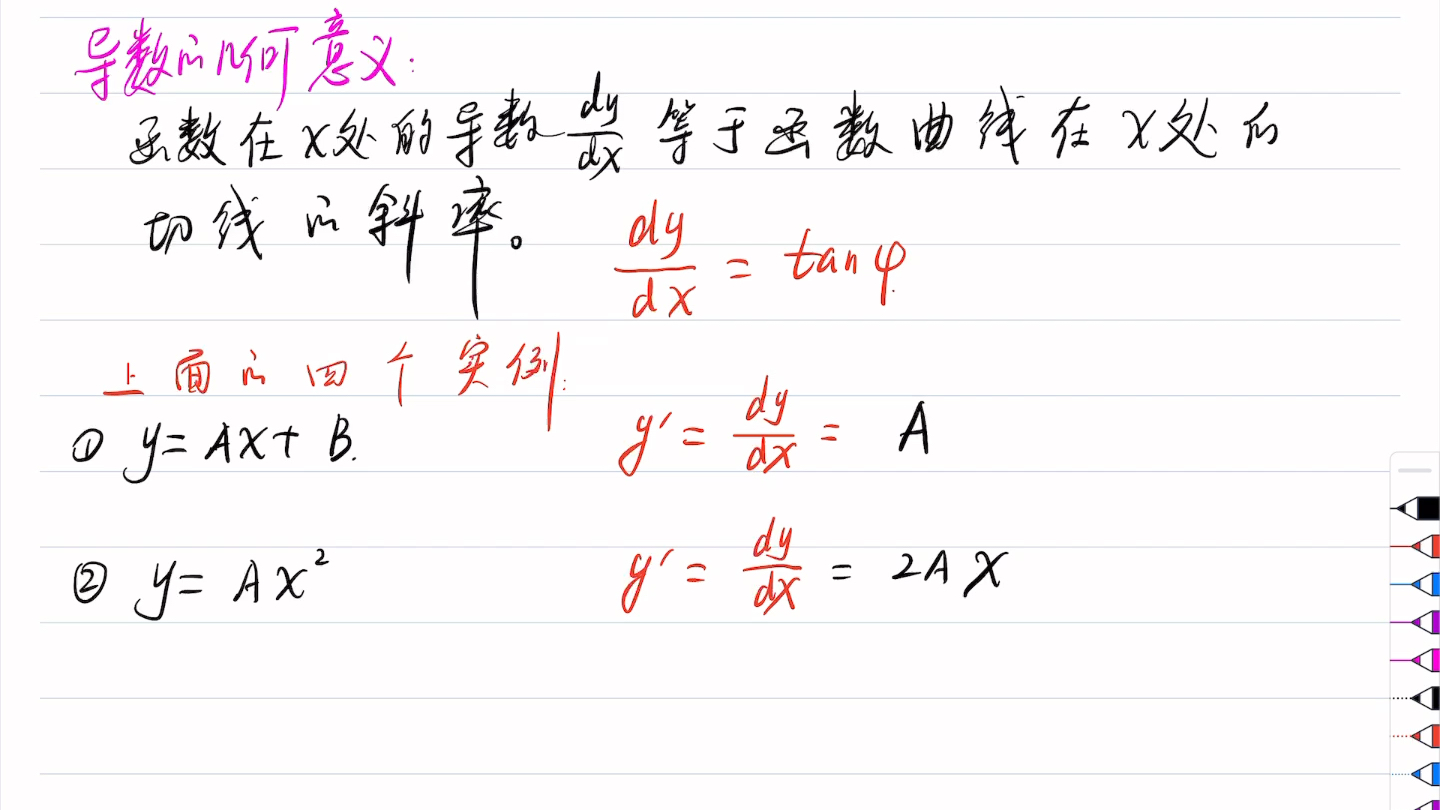 导数的几何意义:
函数在x处的导数 dy/dx 等于函数曲线在x处的
切线的斜率。 dy/dx = tanφ
上面的四个实例:
① y = Ax + B. y′ = dy/dx = A
② y = Ax² y′ = dy/dx = 2Ax